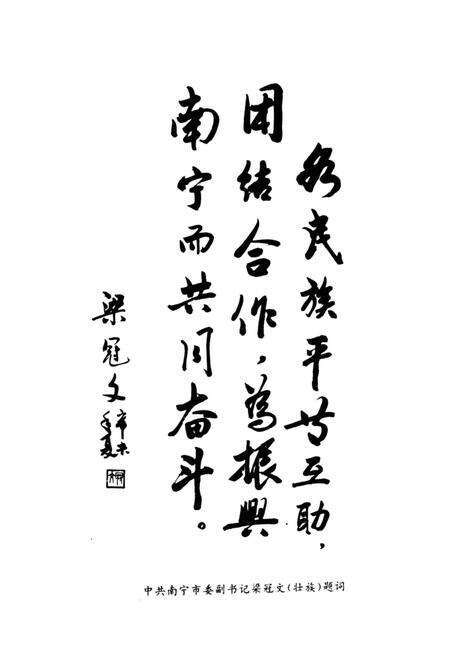 各民族平等互助，
团结合作，為振興
南宁而共同奋斗。
梁冠文
辛未
年夏
中共南宁市委副书记梁冠文(壮族)题词